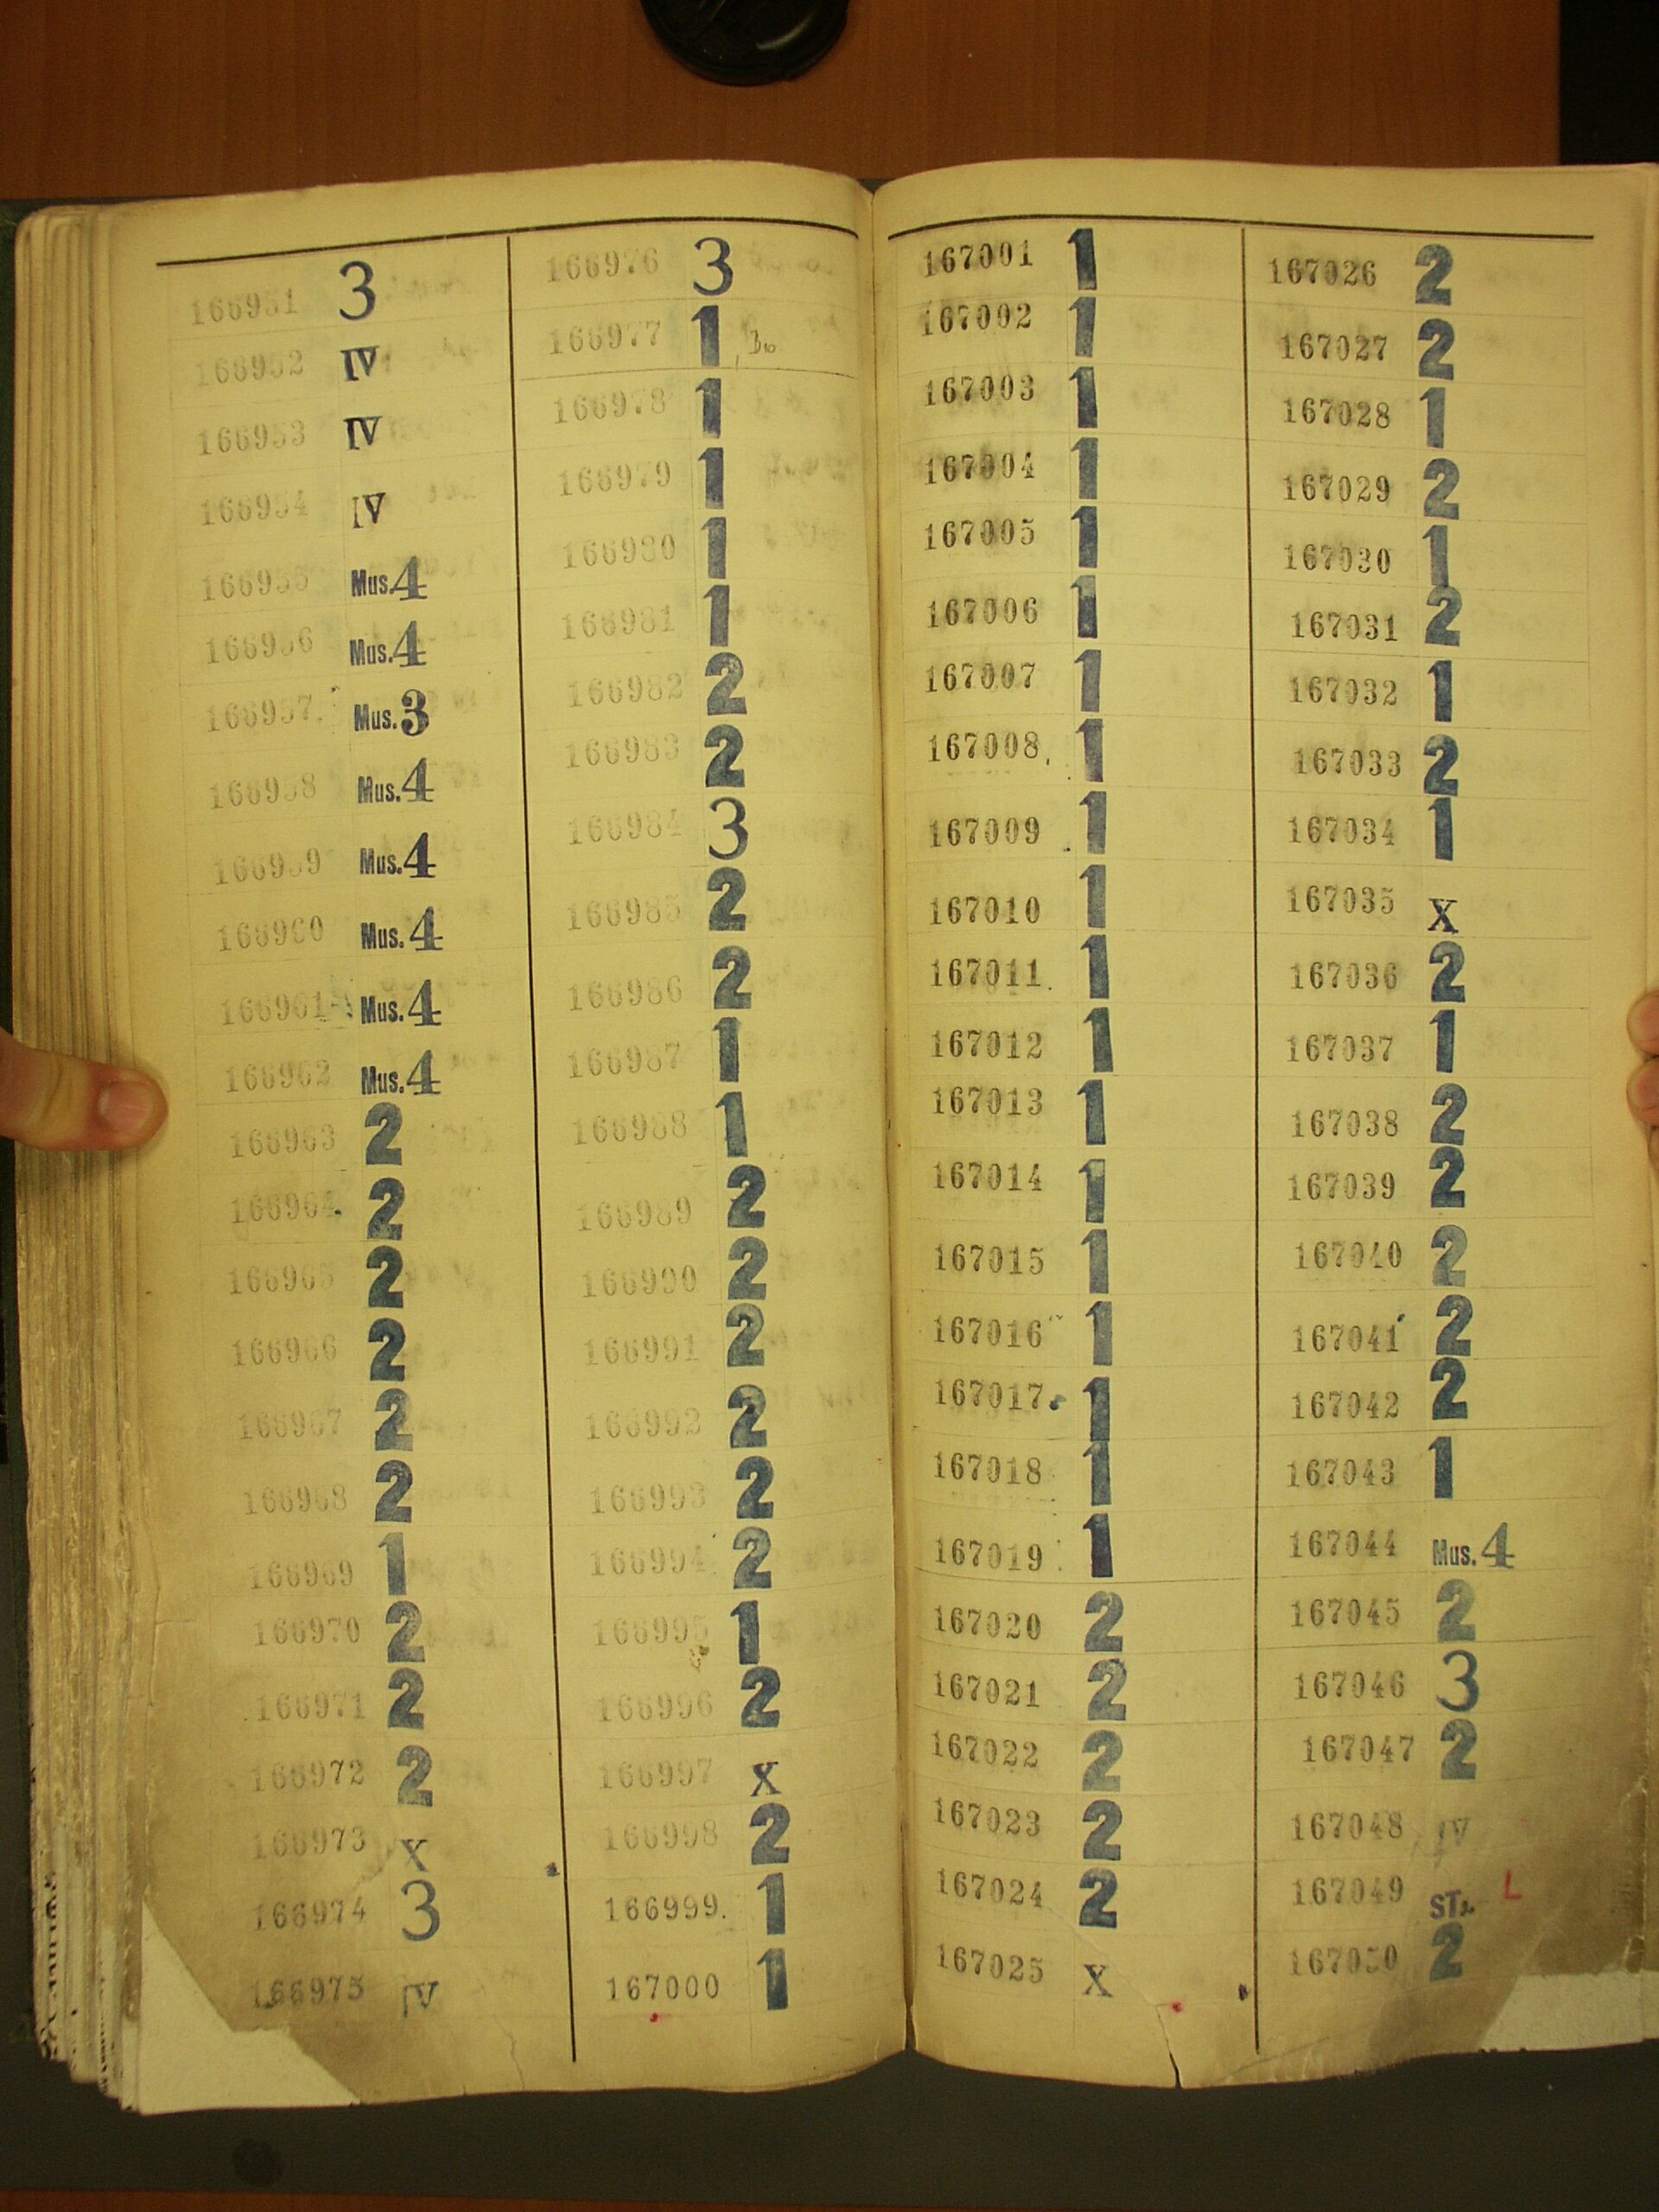 166951 3
166952 IV
166953 IV
166954 IV
166955 Mus.4
166956 Mus.4
166957 Mus.3
166958 Mus.4
166959 Mus.4
166960 Mus.4
166961 Mus.4
166962 Mus.4
166963 2
166964 2
166965 2
166966 2
166967 2
166968 2
166969 1
166970 2
166971 2
166972 2
166973 X
166974 3
166975 IV
166976 3
166977 1
166978 1
166979 1
166980 1
166981 1
166982 2
166983 2
166984 3
166985 2
166986 2
166987 1
166988 1
166989 2
166990 2
166991 2
166992 2
166993 2
166994 2
166995 1
166996 2
166997 X
166998 2
166999. 1
167000 1
167001 1
167002 1
167003 1
167004 1
167005 1
167006 1
167007 1
167008 1
167009 1
167010 1
167011 1
167012 1
167013 1
167014 1
167015 1
167016 1
167017 1
167018 1
167019 1
167020 2
167021 2
167022 2
167023 2
167024 2
167025 X
167026 2
167027 2
167028 1
167029 2
167030 1
167031 2
167032 1
167033 2
167034 1
167035 X
167036 2
167037 1
167038 2
167039 2
167040 2
167041 2
167042 2
167043 1
167044 Mus.4
167045 2
167046 3
167047 2
167048 IV
167049 ST. L
167050 2